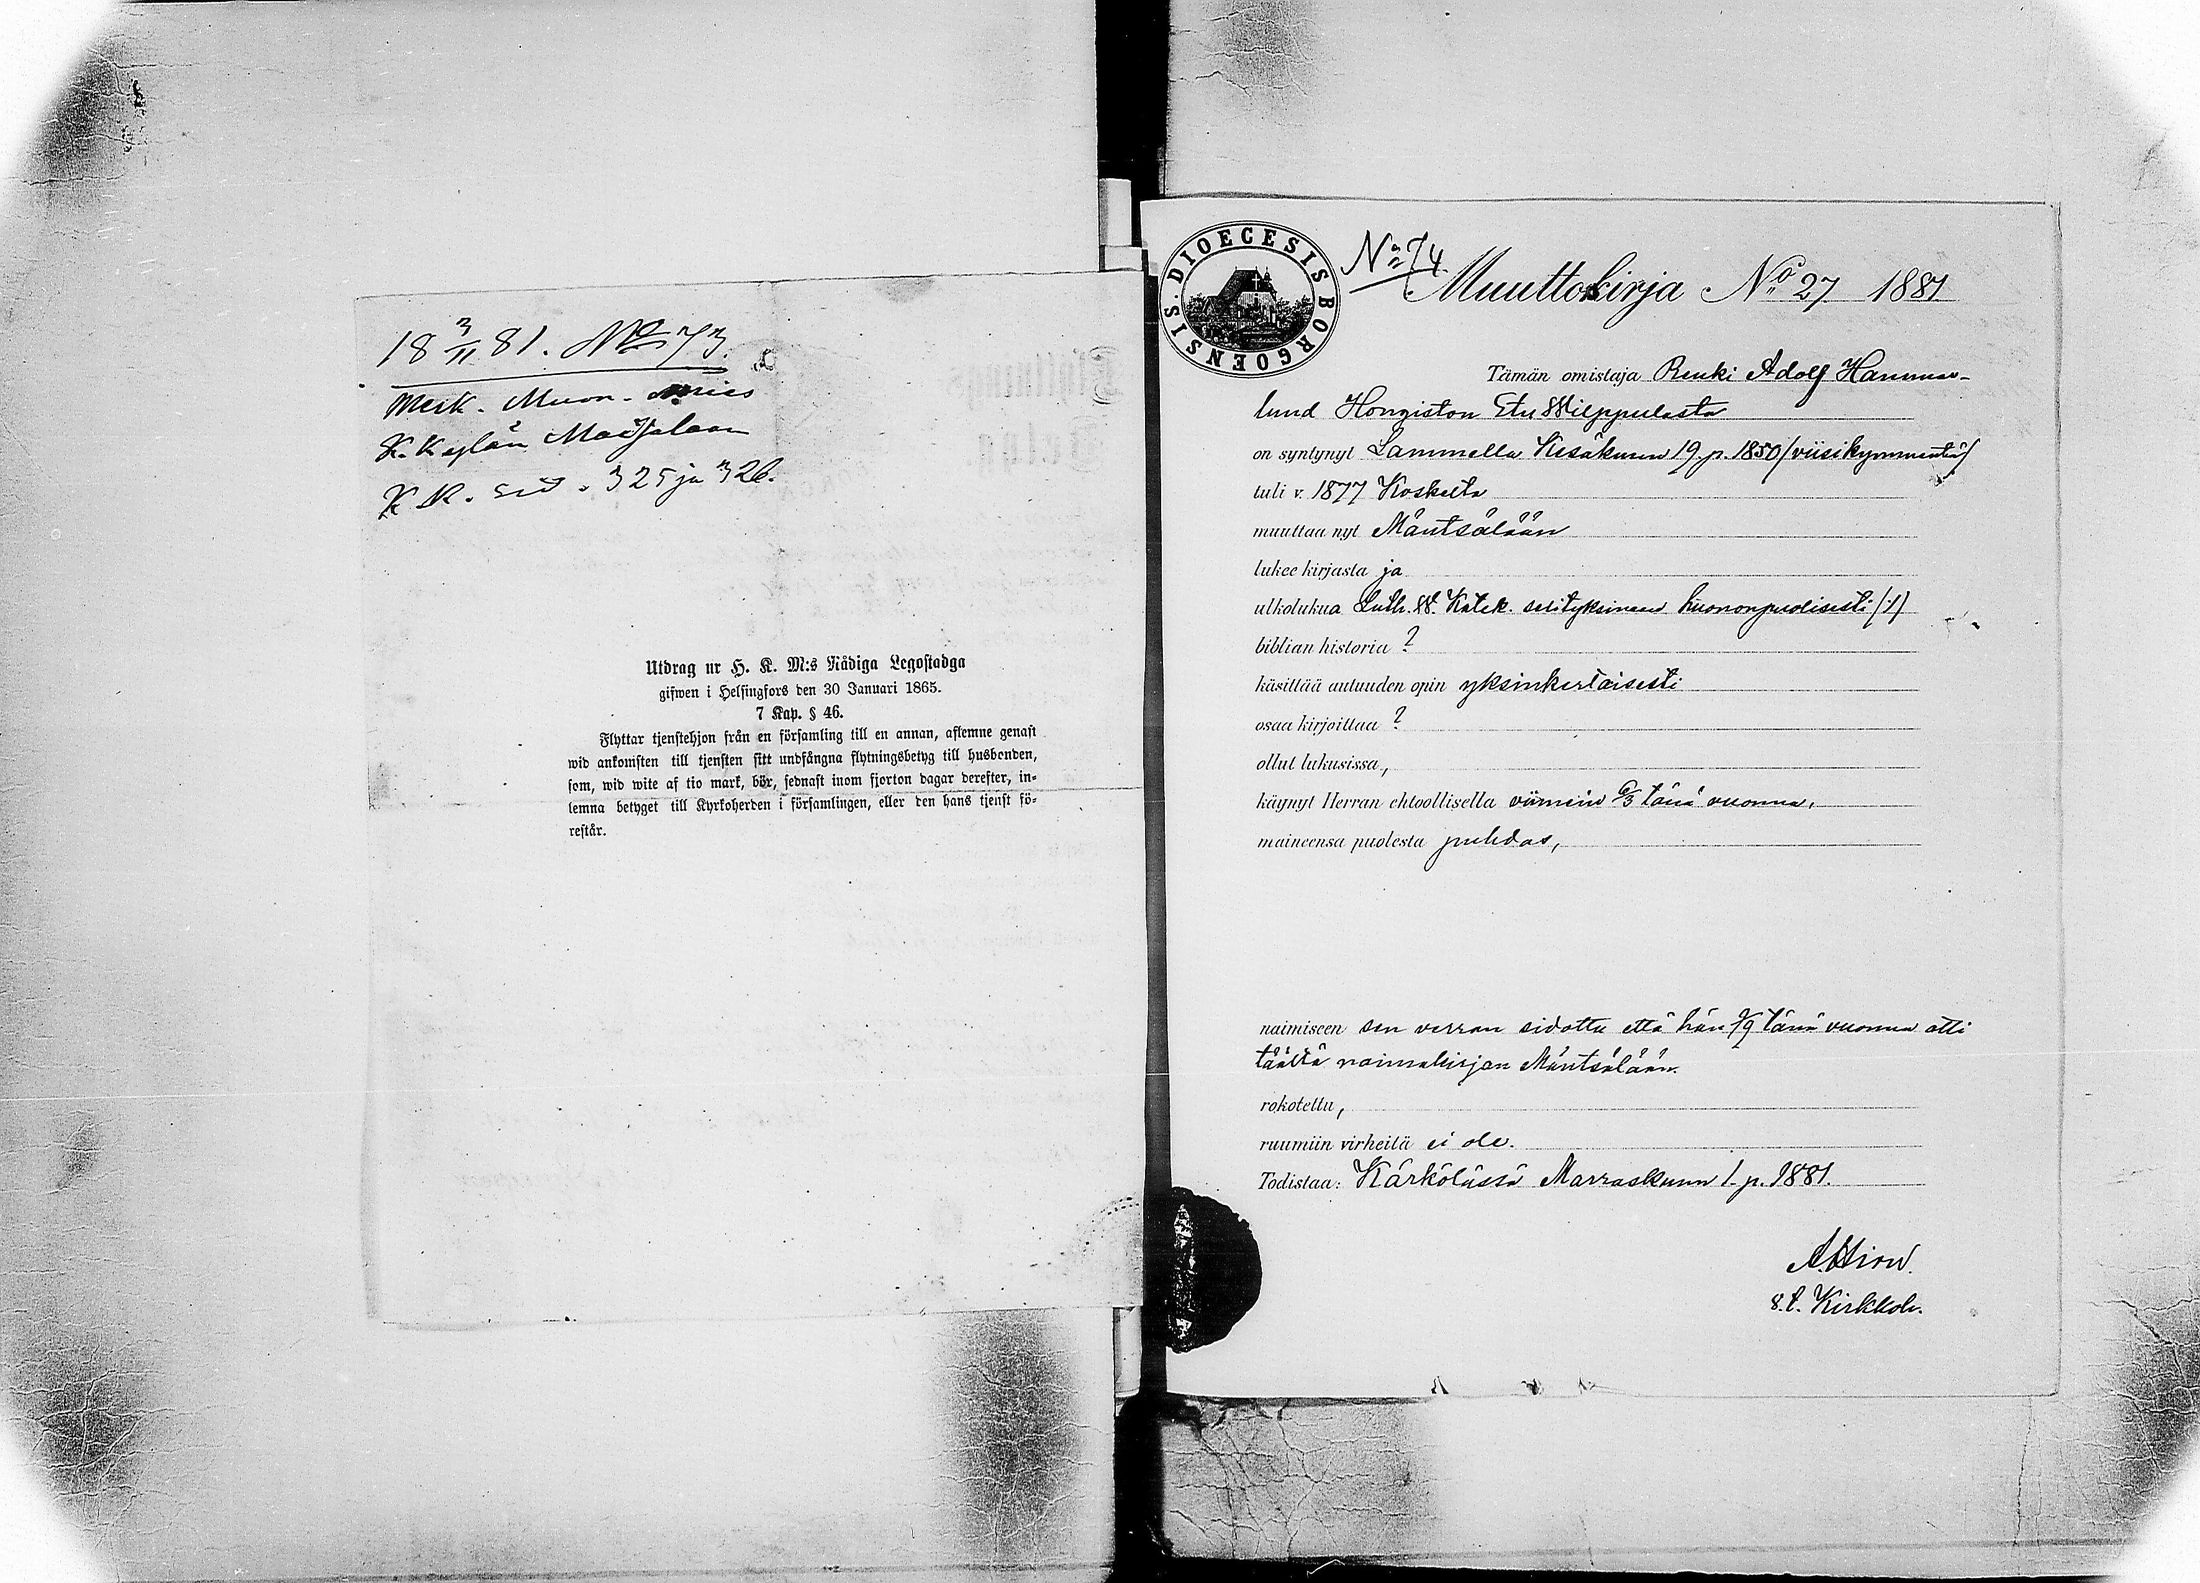 18 3/11 81. No 73.
Merk. Muon. mies
K. Kylän
K. K. siv. 325 ja 326.
Utdrag ur H. K. M:s Nådiga Legostadga
gifwen i Helsingfors den 30 Januari 1865.
7 Kap. § 46.
Flyttar tjenstehjon från en församling till en annan, aflemne genast
wid ankomsten till tjensten sitt undfångna flyttningsbetyg till husbonden,
som, wid wite af tio mark, bör, sednast inom fjorton dagar derefter, in-
lemna betyget till Kyrkoherden i församlingen, eller den hans tjenst fö-
restår.
DIOECESIS BORGOENSIS.
No 74.
Muuttokirja No 27 1881
Tämän omistaja Renki Adolf Hammar-
lund Hongiston Etu Wilppulasta
on syntynyt Lammella Kesäkuun 19. p. 1850 /viisikymmentä/
tuli v. 1877 Koskelta
muuttaa nyt Mäntsälään
lukee kirjasta ja
ulkolukua Luth. W. Katek. selityksineen huononpuolisesti /1/
biblian historia ?
käsittää autuuden opin yksinkertaisesti
osaa kirjoittaa ?
ollut lukusissa,
käynyt Herran ehtoollisella viimein 6/3 tänä vuonna,
maineensa puolesta puhdas,
naimiseen sen verran sidottu että hän 7/9 tänä vuonna otti
täältä naimakirjan Mäntsälään.
rokotettu,
ruumiin virheitä ei ole.
Todistaa: Kärkölässä Marraskuun 1 p. 1881.
A. Hirn.
v. t. Kirkkoh.